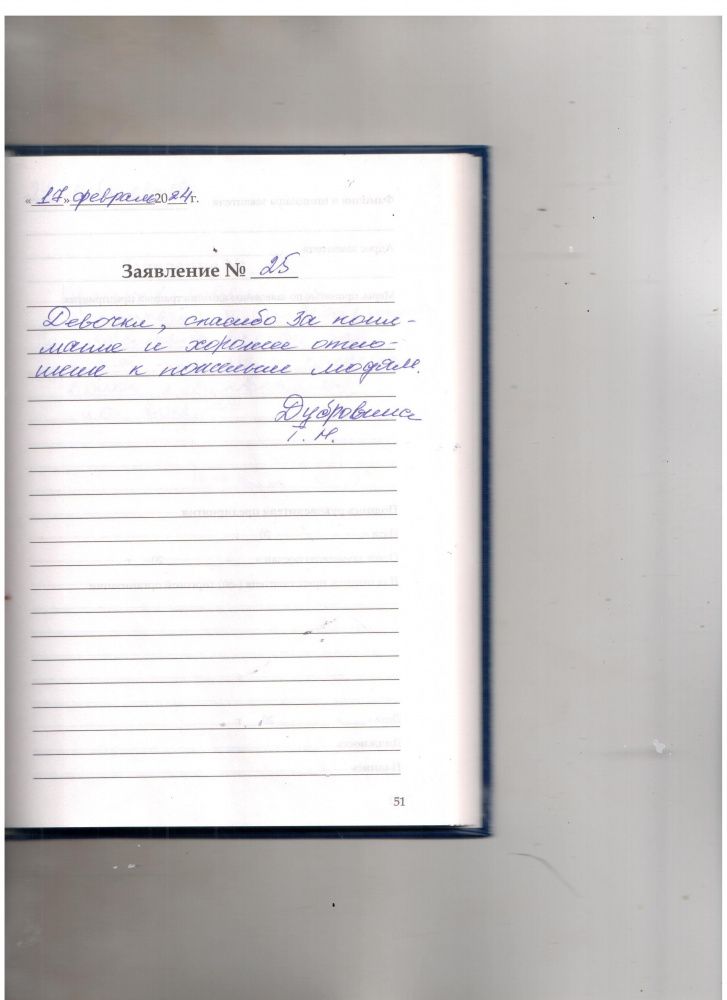 «17» февраль 2024 г.
Заявление № 25
Девочки, спасибо за пони-
мание и хорошее отно-
шение к пожилым людям.
Дубровина
Т. Н.
51